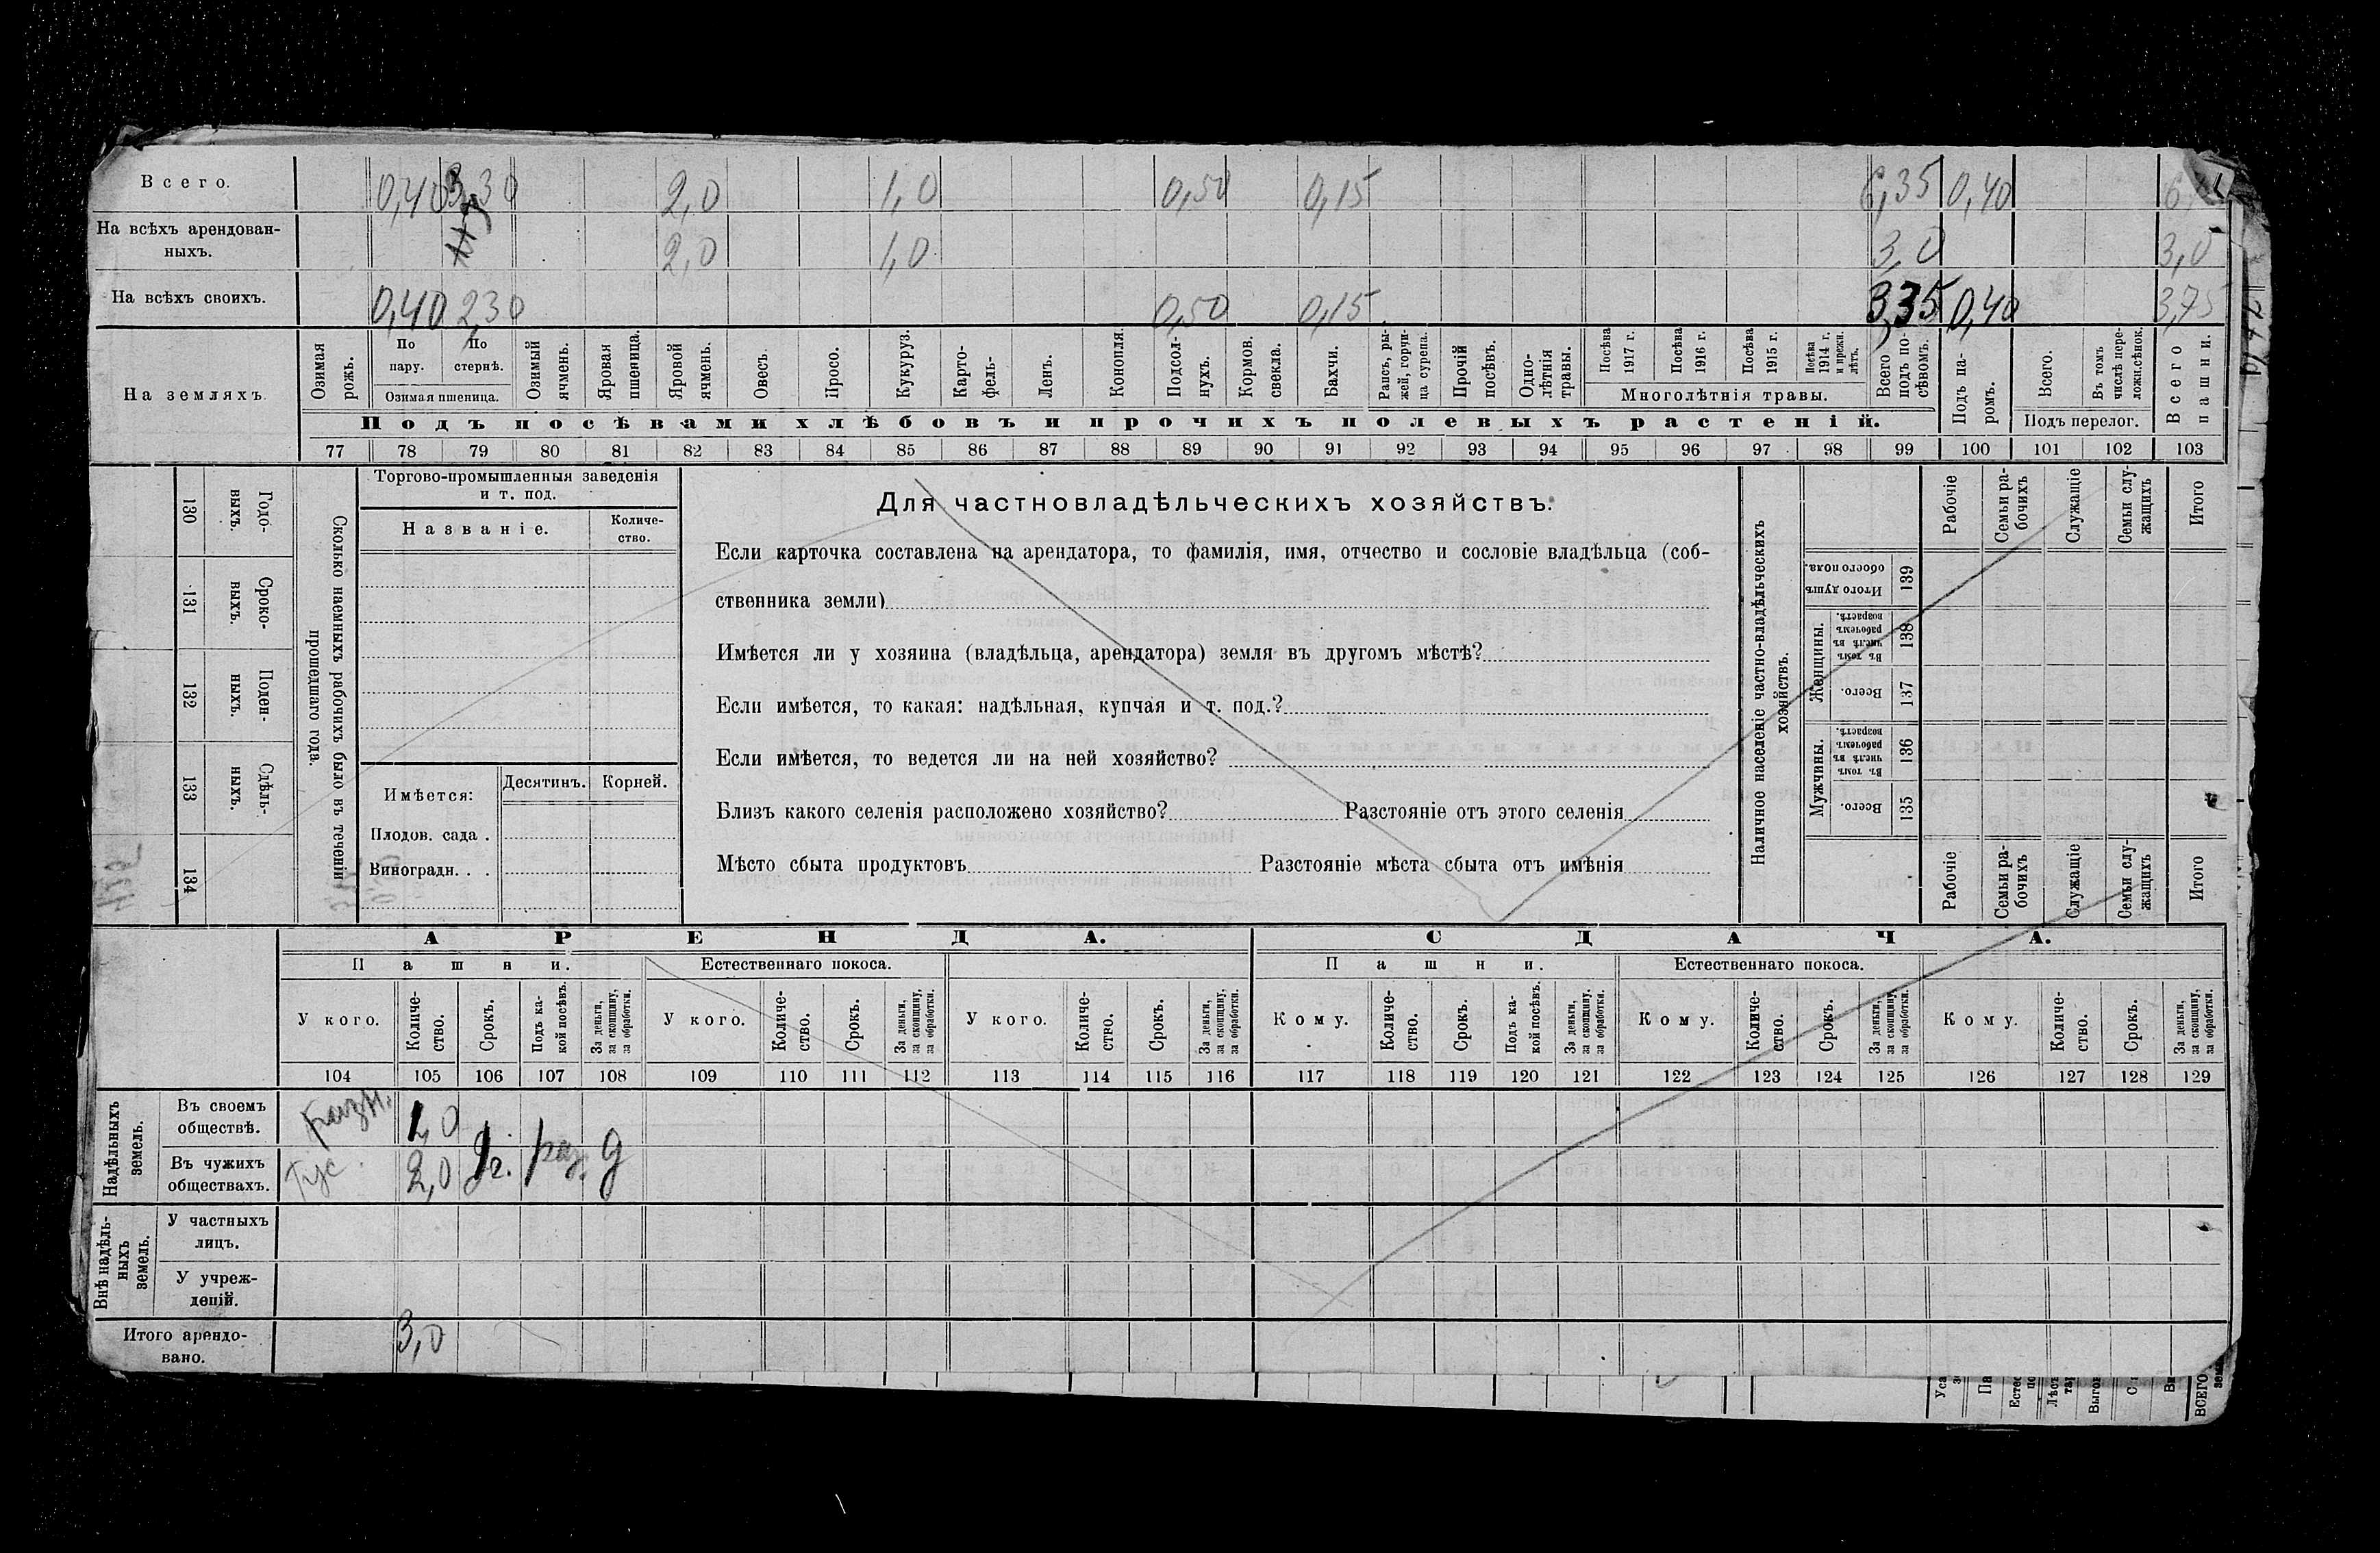 Всего. 0,40 2,0 1,0 0,50 0,15 6,35 0,40
На всѣхъ арендован-
ныхъ. 2,0 1,0 3,0 3,0
На всѣхъ своихъ. 0,40 2,30 0,50 0,15 3,35 0,40 3,75
На земляхъ.
Озимая рожь.
По пару.
По стернѣ.
Озимая пшеница.
Озимый ячмень.
Яровая пшеница.
Яровой ячмень.
Овесъ.
Просо.
Кукуруз.
Карто-
фель-
Ленъ.
Конопля.
Подсол-
нухъ.
Кормов. свекла.
Бахчи.
Рапсъ, ры-
жей, горчи-
ца сурепа.
Прочій посѣвъ.
Одно-
лѣтнія травы.
Посѣва 1917 г.
Посѣва 1916 г.
Посѣва 1915 г.
Посѣва 1914 г. и прежн. лѣтъ.
Многолѣтнія травы.
Всего подъ по-
сѣвомъ.
Подъ па-
ромъ.
Всего.
Въ томъ числѣ пере-
ложн.сѣнок.
Подъ перелог.
Всего пашни.
Подъ посѣвами хлѣбовъ и прочихъ полевыхъ растеній.
77 78 79 80 81 82 83 84 85 86 87 88 89 90 91 92 93 94 95 96 97 98 99 100 101 102 103
130 Годо-
выхъ.
131 Сроко-
ныхъ.
132 Поден-
ныхъ.
133 Сдѣль-
ныхъ.
134
Сколько наемныхъ рабочихъ было въ теченіи
прошедшаго года.
Торгово-промышленныя заведенія
и т. под.
Названіе.
Количе-
ство.
Имѣется:
Десятинъ. Корней.
Плодов. сада .
Виноградн. . .
Для частновладѣльческихъ хозяйствъ.
Если карточка составлена на арендатора, то фамилія, имя, отчество и сословіе владѣльца (соб-
ственника земли)
Имѣется ли у хозяина (владѣльца, арендатора) земля въ другомъ мѣстѣ?
Если имѣется, то какая: надѣльная, купчая и т. под.?
Если имѣется, то ведется ли на ней хозяйство?
Близъ какого селенія расположено хозяйство? Разстояніе отъ этого селенія
Мѣсто сбыта продуктовъ Разстояніе мѣста сбыта отъ имѣнія
Наличное населеніе частно-владѣльческихъ
хозяйствъ.
Рабочіе
Семьи ра-
бочихъ
Служащіе
Семьи слу-
жащихъ
Итого
Итого душъ обоего пола. 139
Женщины.
Въ томъ числѣ въ рабочемъ возрастѣ. 138
Всего. 137
Мужчины.
Въ томъ числѣ въ рабочемъ возрастѣ. 136
Всего. 135
Рабочіе
Семьи ра-
бочихъ
Служащіе
Семьи слу-
жащихъ
Итого
АРЕНДА. СДАЧА.
Пашни. Естественнаго покоса. Пашни. Естественнаго покоса.
У кого.
Количе-
ство.
Срокъ.
Подъ ка-
кой посѣвъ.
За деньги, за скопщину, за обработки.
У кого.
Количе-
ство.
Срокъ.
За деньги, за скопщину, за обработки.
У кого.
Количе-
ство.
Срокъ.
За деньги, за скопщину, за обработки.
Кому.
Количе-
ство.
Срокъ.
Подъ ка-
кой посѣвъ.
За деньги, за скопщину, за обработки.
Кому.
Количе-
ство.
Срокъ.
За деньги, за скопщину, за обработки.
Кому.
Количе-
ство.
Срокъ.
За деньги, за скопщину, за обработки.
104 105 106 107 108 109 110 111 112 113 114 115 116 117 118 119 120 121 122 123 124 125 126 127 128 129
Надѣльныхъ земель.
Въ своемъ
обществѣ. 1,0
Въ чужихъ
обществахъ. 2,0
Внѣ надѣль-
ныхъ земель.
У частныхъ
лицъ.
У учреж-
деній.
Итого арендо-
вано. 3,0